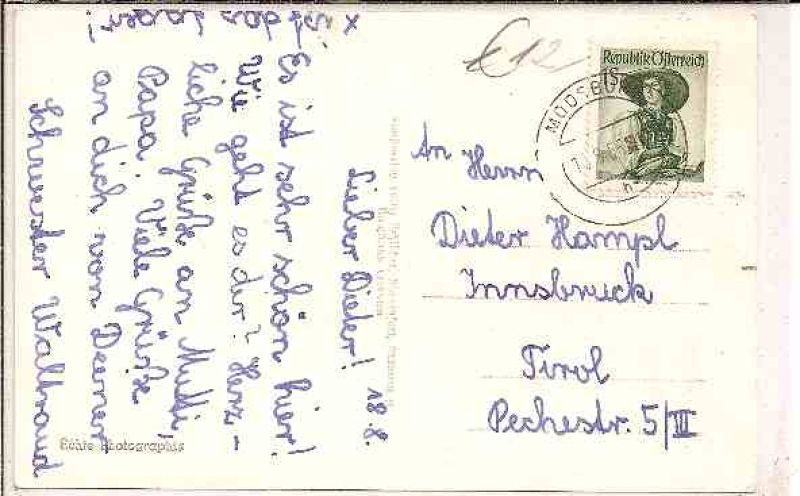 18.8.
Lieber Dieter!
Es ist sehr schön hier!
Wie geht es dir? Herz-
liche Grüße an Mutti,
Papa. Viele Grüße
an dich von Deiner
Schwester Waltraud
x ist das Lager!
€ 12
Republik Österreich
1S
MOOSBU
An Herrn
Dieter Hampl
Innsbruck
Tirol
Pechestr. 5/III
Echte Photographie